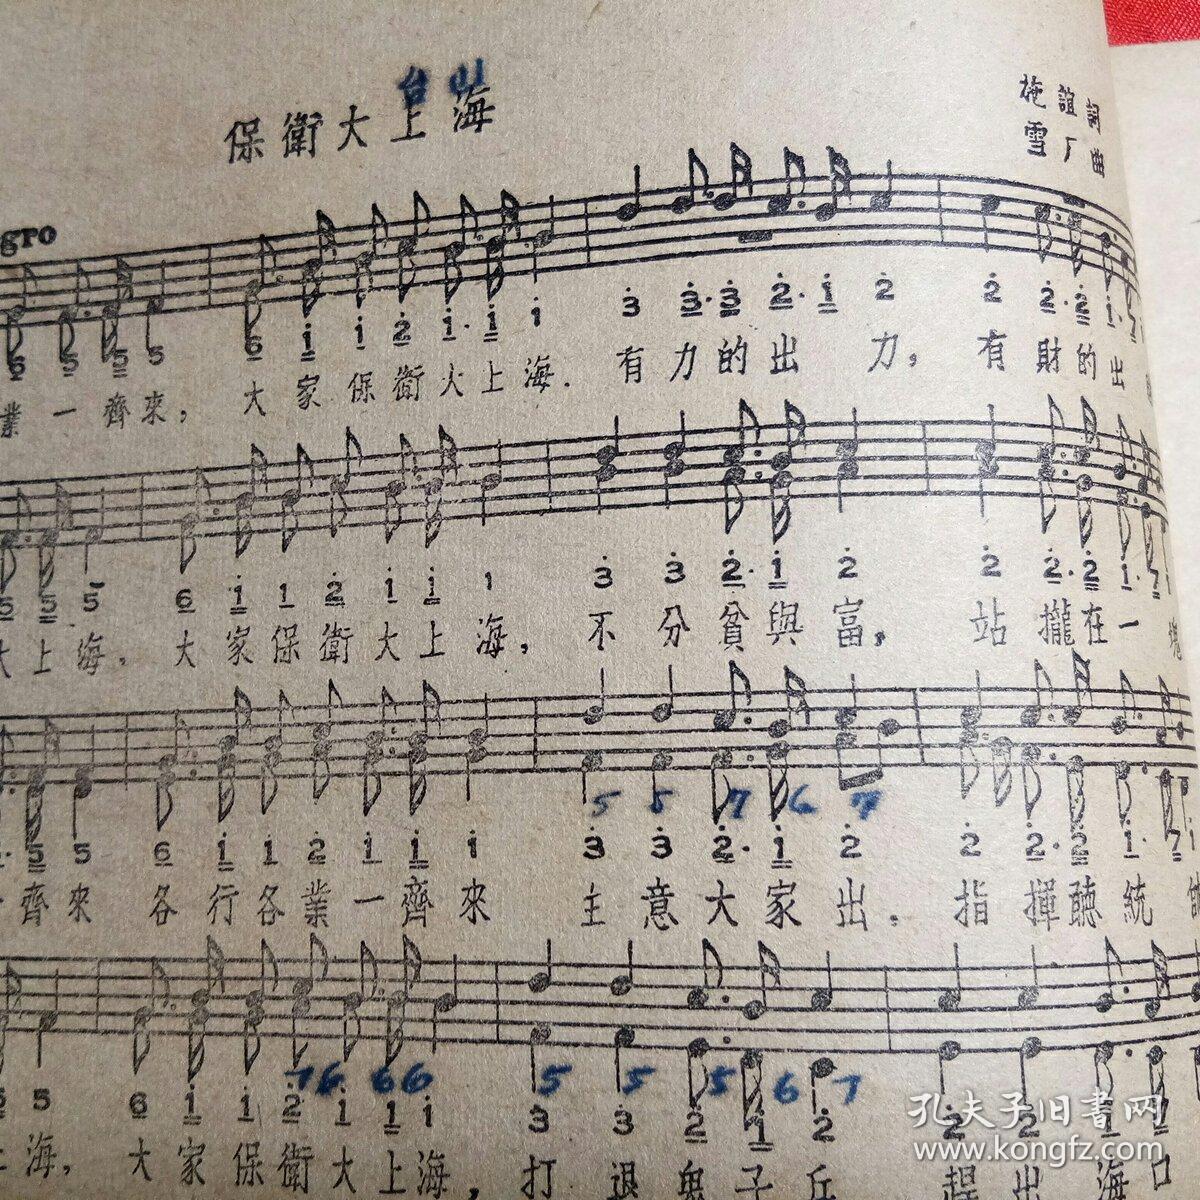 台山
保衛大上海
施誼詞
雪厂曲
gro
6 5 5 5 6 1 1 2 1. 1 1 3 3. 3 2. 1 2 2 2. 2 1. 7
業一齊來, 大家保衛大上海. 有力的出力, 有財的出
5 5 5 6 1 1 2 1 1 1 3 3 2. 1 2 2 2. 2 1. 7
大上海, 大家保衛大上海, 不分貧與富, 站攏在一塊
5 5 7 6 7
5 5 6 1 1 2 1 1 1 3 3 2. 1 2 2 2. 2 1. 7
齊來 各行各業一齊來 主意大家出, 指揮聽統
7 6 6 6 5 5 5 6 7
5 5 6 1 1 2 1 1 1 3 3 2. 1 2 2 2 2. 1 7
上海, 大家保衛大上海, 打退鬼子兵 趕出海口
孔夫子旧书网
www.kongfz.com